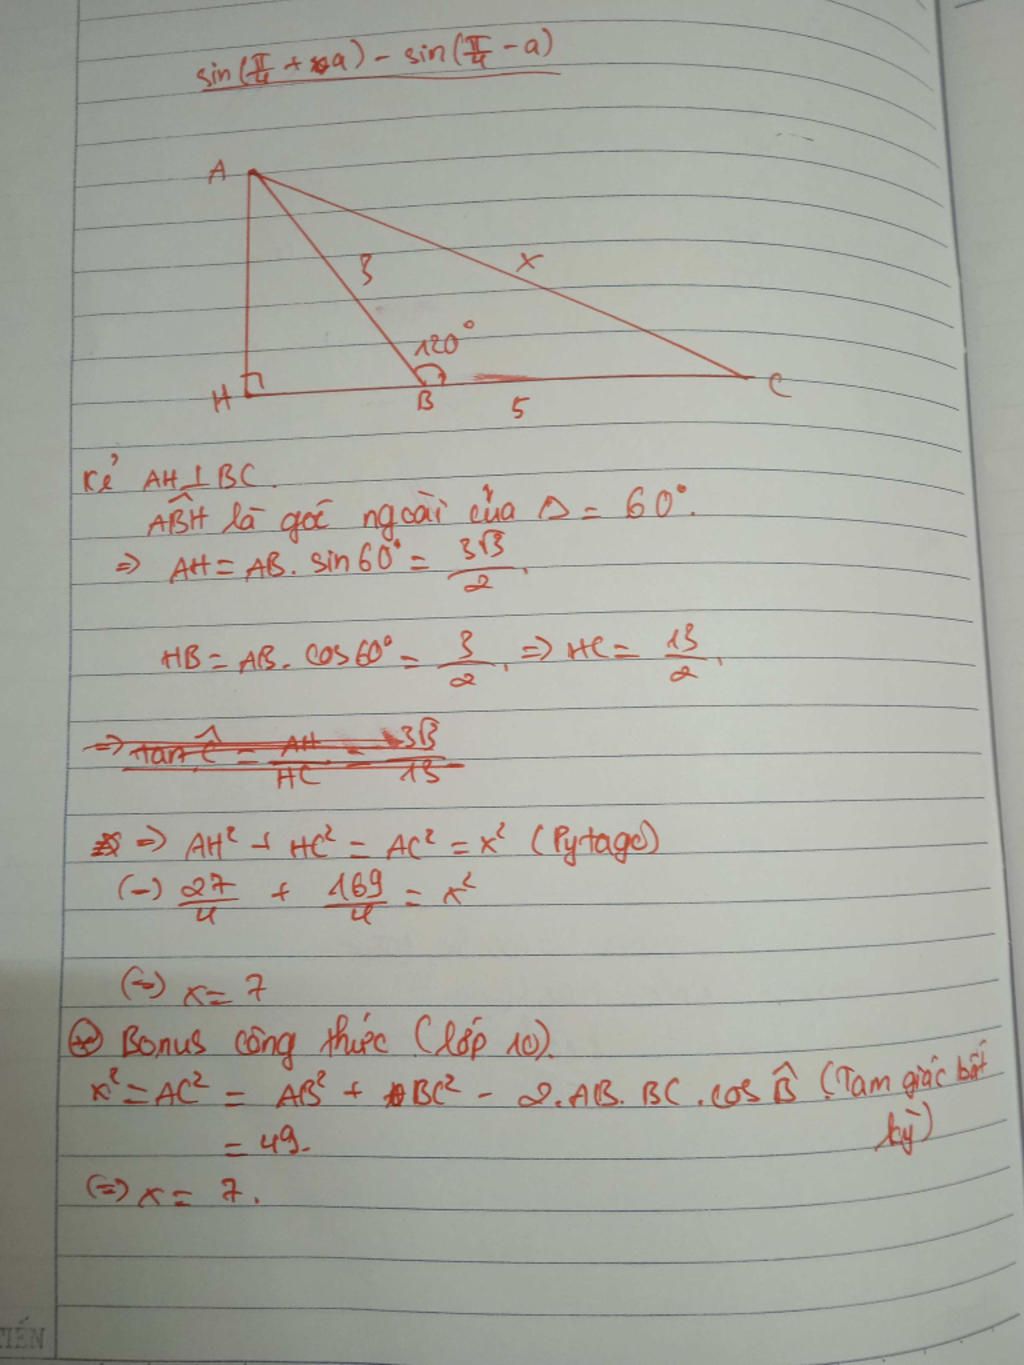 sin(π/4 + a) - sin(π/4 - a)
A
3
x
120°
H
B
5
C
Kẻ AH ⊥ BC.
ABH là góc ngoài của Δ = 60°.
=> AH = AB. sin60° = 3√3/2.
HB = AB. cos60° = 3/2. => HC = 13/2.
=> tan Ĉ = AH/HC = 3√3/13
=> AH² + HC² = AC² = x² (Pytago)
(=) 27/4 + 169/4 = x²
(=) x = 7
* Bonus công thức (lớp 10).
x² = AC² = AB² + BC² - 2.AB.BC.cos B̂ (Tam giác bất
kỳ)
= 49.
(=) x = 7.
TIẾN